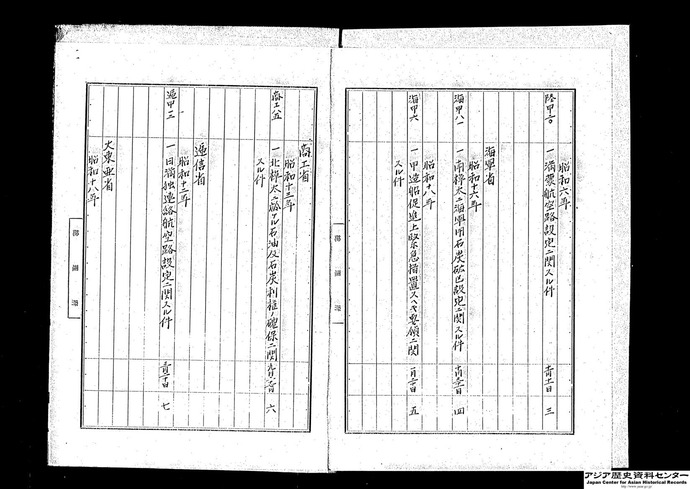 昭和六年
陸甲
一 満蒙航空路設定ニ関スル件
三
海軍省
昭和十六年
海甲八一
一 南樺太ニ海軍用石炭砿区設定ニ関スル件
四
昭和十八年
海甲六
一 甲造船促進上緊急措置スヘキ要領ニ関
スル件
五
商工省
昭和十三年
商工八五
一 北樺太ニ於ケル石油及石炭利権ノ確保ニ関
スル件
六
逓信省
昭和十二年
逓甲三
一 日満独連絡航空路設定ニ関スル件
七
大東亜省
昭和十八年
内閣
アジア歴史資料センター
Japan Center for Asian Historical Records